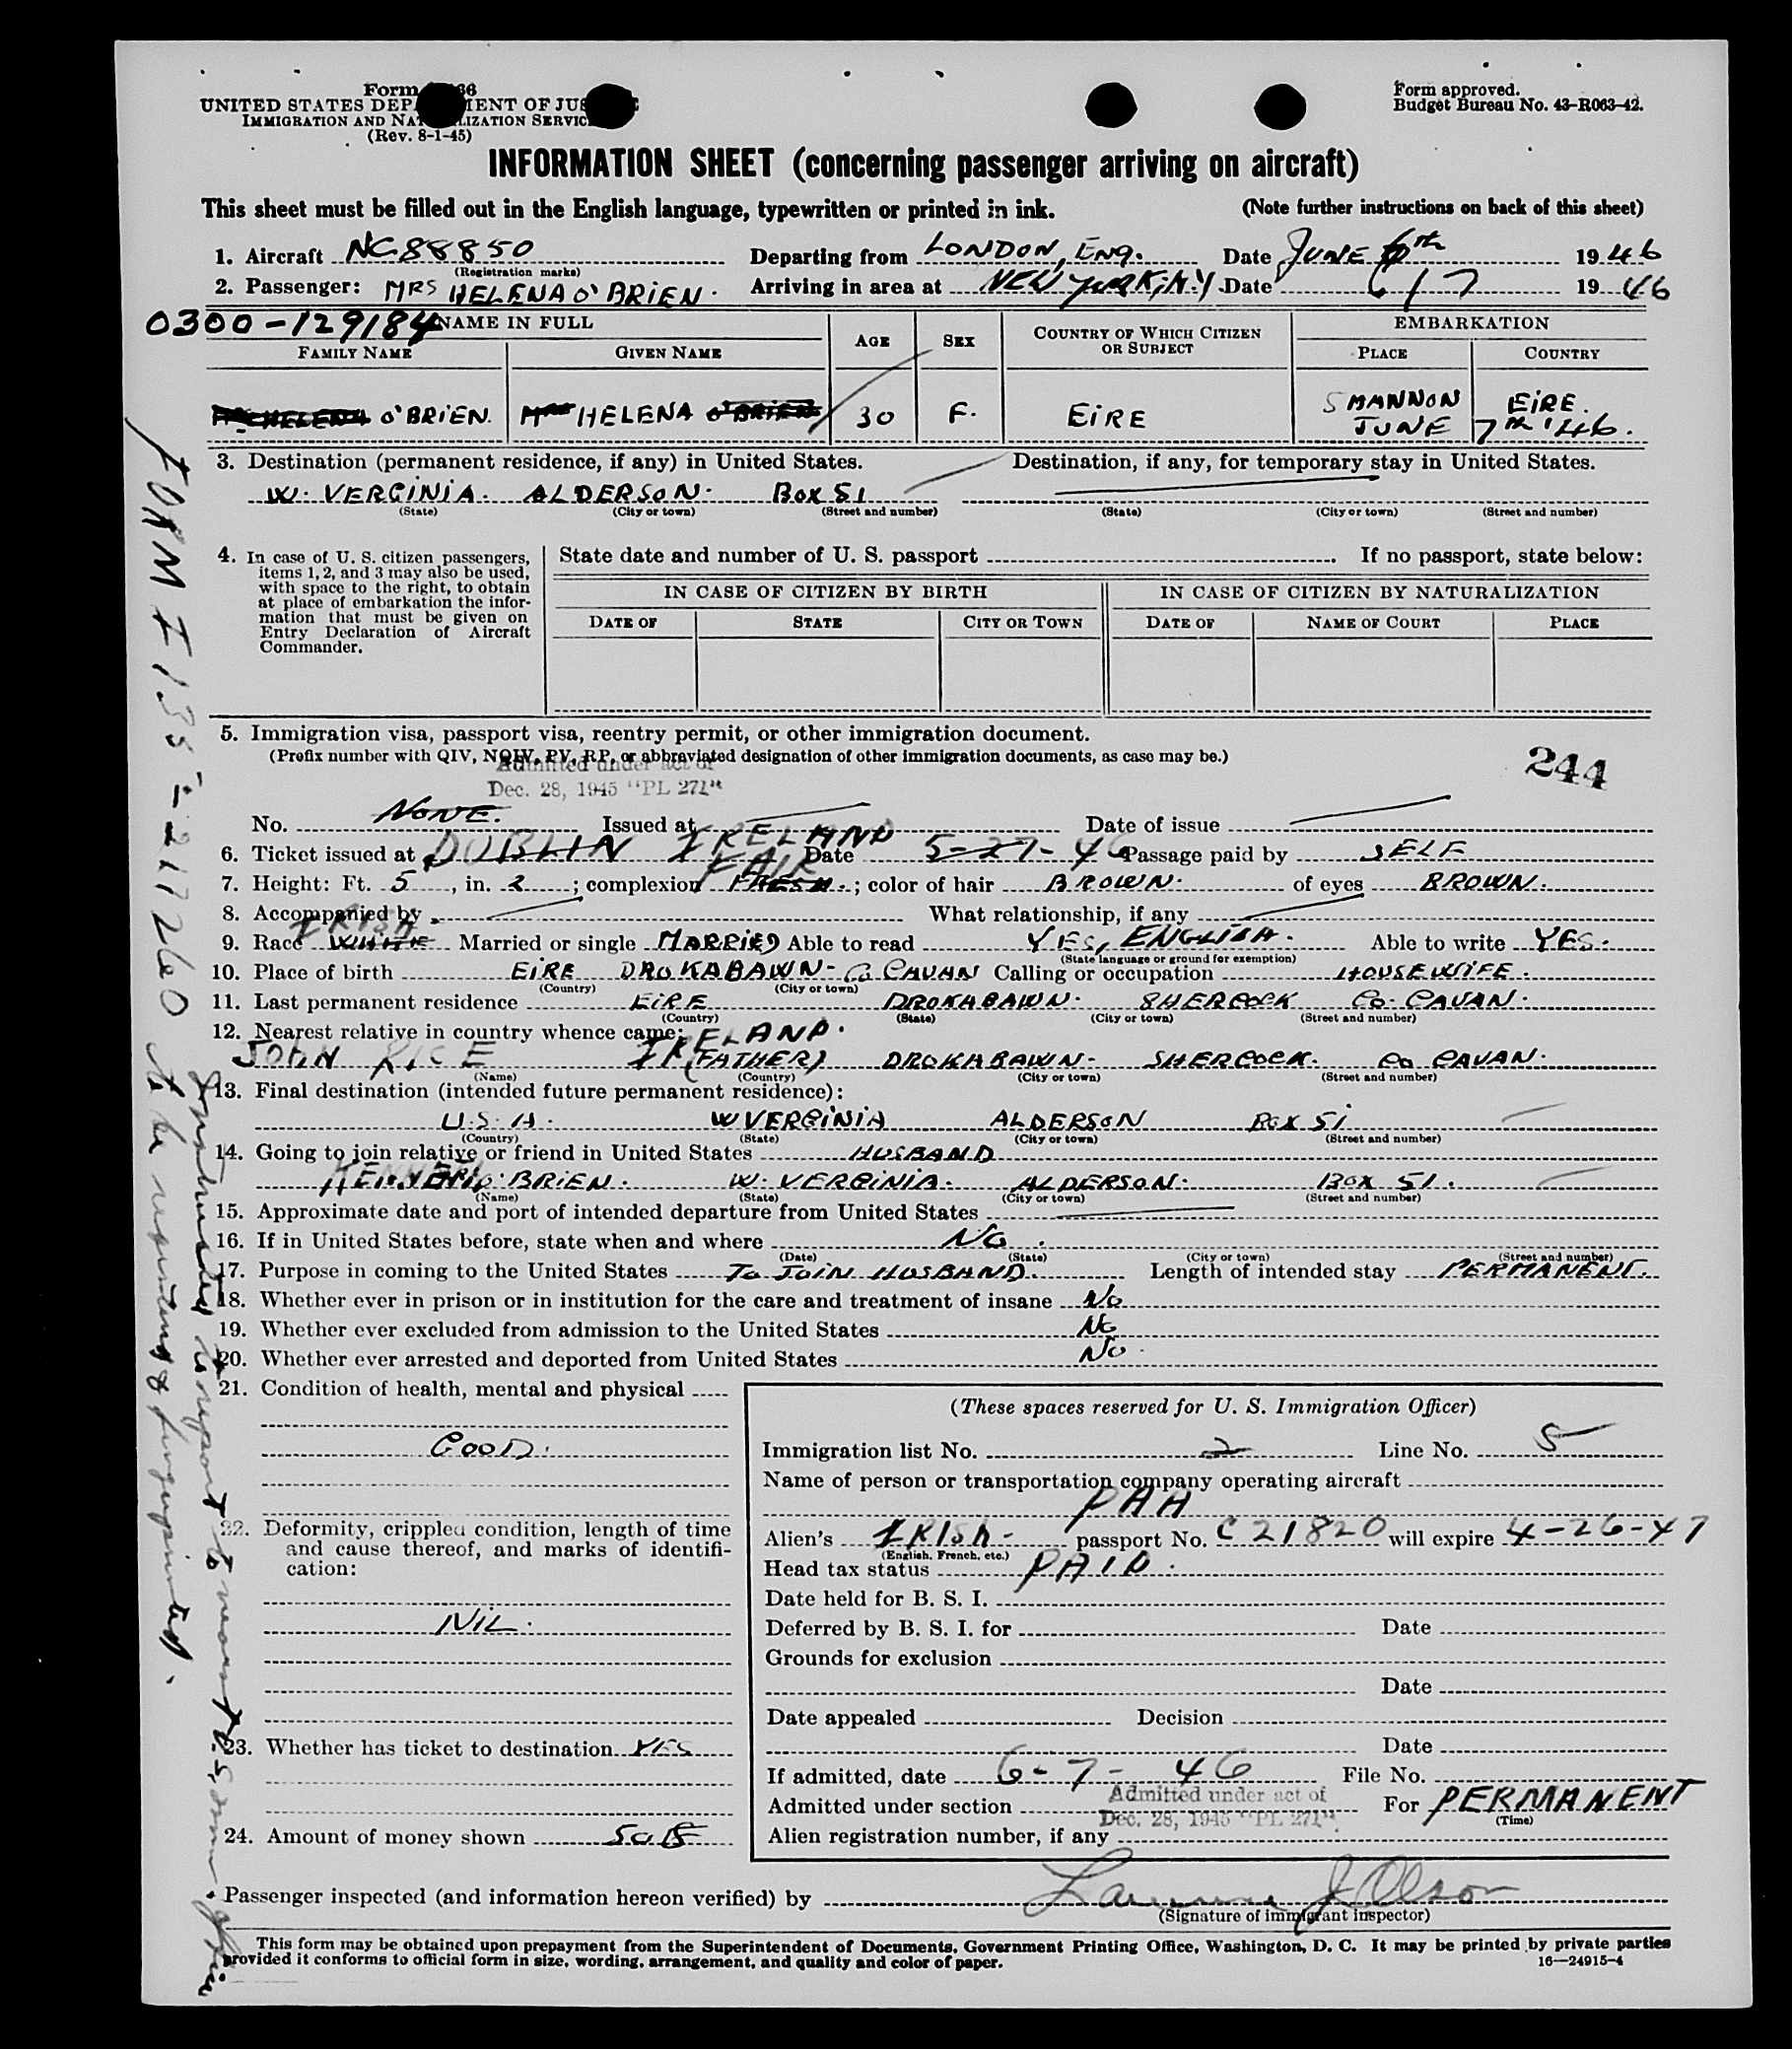 Form 66
UNITED STATES DEP MENT OF JUS E
IMMIGRATION AND NAT LIZATION SERVIC
(Rev. 8-1-45)
Form approved.
Budget Bureau No. 43-R063-42.
INFORMATION SHEET (concerning passenger arriving on aircraft)
This sheet must be filled out in the English language, typewritten or printed in ink. (Note further instructions on back of this sheet)
1. Aircraft NC88850 Departing from LONDON, ENG. Date JUNE 6th 1946
(Registration marks)
2. Passenger: MRS HELENA O'BRIEN. Arriving in area at NEW YORK, N.Y. Date 6/7 1946
0300-129184
NAME IN FULL AGE SEX COUNTRY OF WHICH CITIZEN OR SUBJECT EMBARKATION
FAMILY NAME GIVEN NAME PLACE COUNTRY
HELENA O'BRIEN. MRS HELENA O'BRIEN 30 F. EIRE SHANNON EIRE.
JUNE 7TH '46.
3. Destination (permanent residence, if any) in United States. Destination, if any, for temporary stay in United States.
W. VERGINIA. ALDERSON. BOX 51
(State) (City or town) (Street and number) (State) (City or town) (Street and number)
4. In case of U. S. citizen passengers, items 1, 2, and 3 may also be used, with space to the right, to obtain at place of embarkation the information that must be given on Entry Declaration of Aircraft Commander.
State date and number of U. S. passport If no passport, state below:
IN CASE OF CITIZEN BY BIRTH IN CASE OF CITIZEN BY NATURALIZATION
DATE OF STATE CITY OR TOWN DATE OF NAME OF COURT PLACE
5. Immigration visa, passport visa, reentry permit, or other immigration document.
(Prefix number with QIV, NQIV, PV, RP, or abbreviated designation of other immigration documents, as case may be.)
244
Admitted under act of
Dec. 28, 1945 "PL 271"
No. NONE. Issued at Date of issue
6. Ticket issued at DUBLIN IRELAND Date 5-27-46 Passage paid by SELF
7. Height: Ft. 5, in. 2; complexion FRESH. FAIR; color of hair BROWN. of eyes BROWN.
8. Accompanied by What relationship, if any
9. Race WHITE IRISH Married or single MARRIED Able to read YES, ENGLISH. Able to write YES.
(State language or ground for exemption)
10. Place of birth EIRE DROKABAWN- Co CAVAN Calling or occupation HOUSEWIFE.
(Country) (City or town)
11. Last permanent residence EIRE DROKABAWN. SHERCOCK Co. CAVAN.
(Country) (State) (City or town) (Street and number)
12. Nearest relative in country whence came: IRELAND.
JOHN RICE (FATHER) DROKABAWN- SHERCOCK. Co CAVAN.
(Name) (Country) (City or town) (Street and number)
13. Final destination (intended future permanent residence):
U.S.A. W VERGINIA ALDERSON BOX 51
(Country) (State) (City or town) (Street and number)
14. Going to join relative or friend in United States HUSBAND
O'BRIEN. W. VERGINIA. ALDERSON. BOX 51.
(Name) (State) (City or town) (Street and number)
15. Approximate date and port of intended departure from United States
16. If in United States before, state when and where NO.
(Date) (State) (City or town) (Street and number)
17. Purpose in coming to the United States TO JOIN HUSBAND. Length of intended stay PERMANENT.
18. Whether ever in prison or in institution for the care and treatment of insane NO
19. Whether ever excluded from admission to the United States NO
20. Whether ever arrested and deported from United States NO.
21. Condition of health, mental and physical
GOOD.
22. Deformity, crippled condition, length of time and cause thereof, and marks of identification:
NIL.
23. Whether has ticket to destination YES
24. Amount of money shown
(These spaces reserved for U. S. Immigration Officer)
Immigration list No. 2 Line No. 5
Name of person or transportation company operating aircraft
PAA
Alien's IRISH- passport No. C21820 will expire 4-26-47
(English, French, etc.)
Head tax status PAID.
Date held for B. S. I.
Deferred by B. S. I. for Date
Grounds for exclusion
Date
Date appealed Decision
Date
If admitted, date 6-7-46 File No.
Admitted under section Admitted under act of Dec. 28, 1945 "PL 271". For PERMANENT
(Time)
Alien registration number, if any
Passenger inspected (and information hereon verified) by J Olson
(Signature of immigrant inspector)
This form may be obtained upon prepayment from the Superintendent of Documents, Government Printing Office, Washington, D. C. It may be printed by private parties
provided it conforms to official form in size, wording, arrangement, and quality and color of paper.
16—24915-4
FORM I 135- 217260 to be registered & fingerprinted.
Instructed to report to nearest office